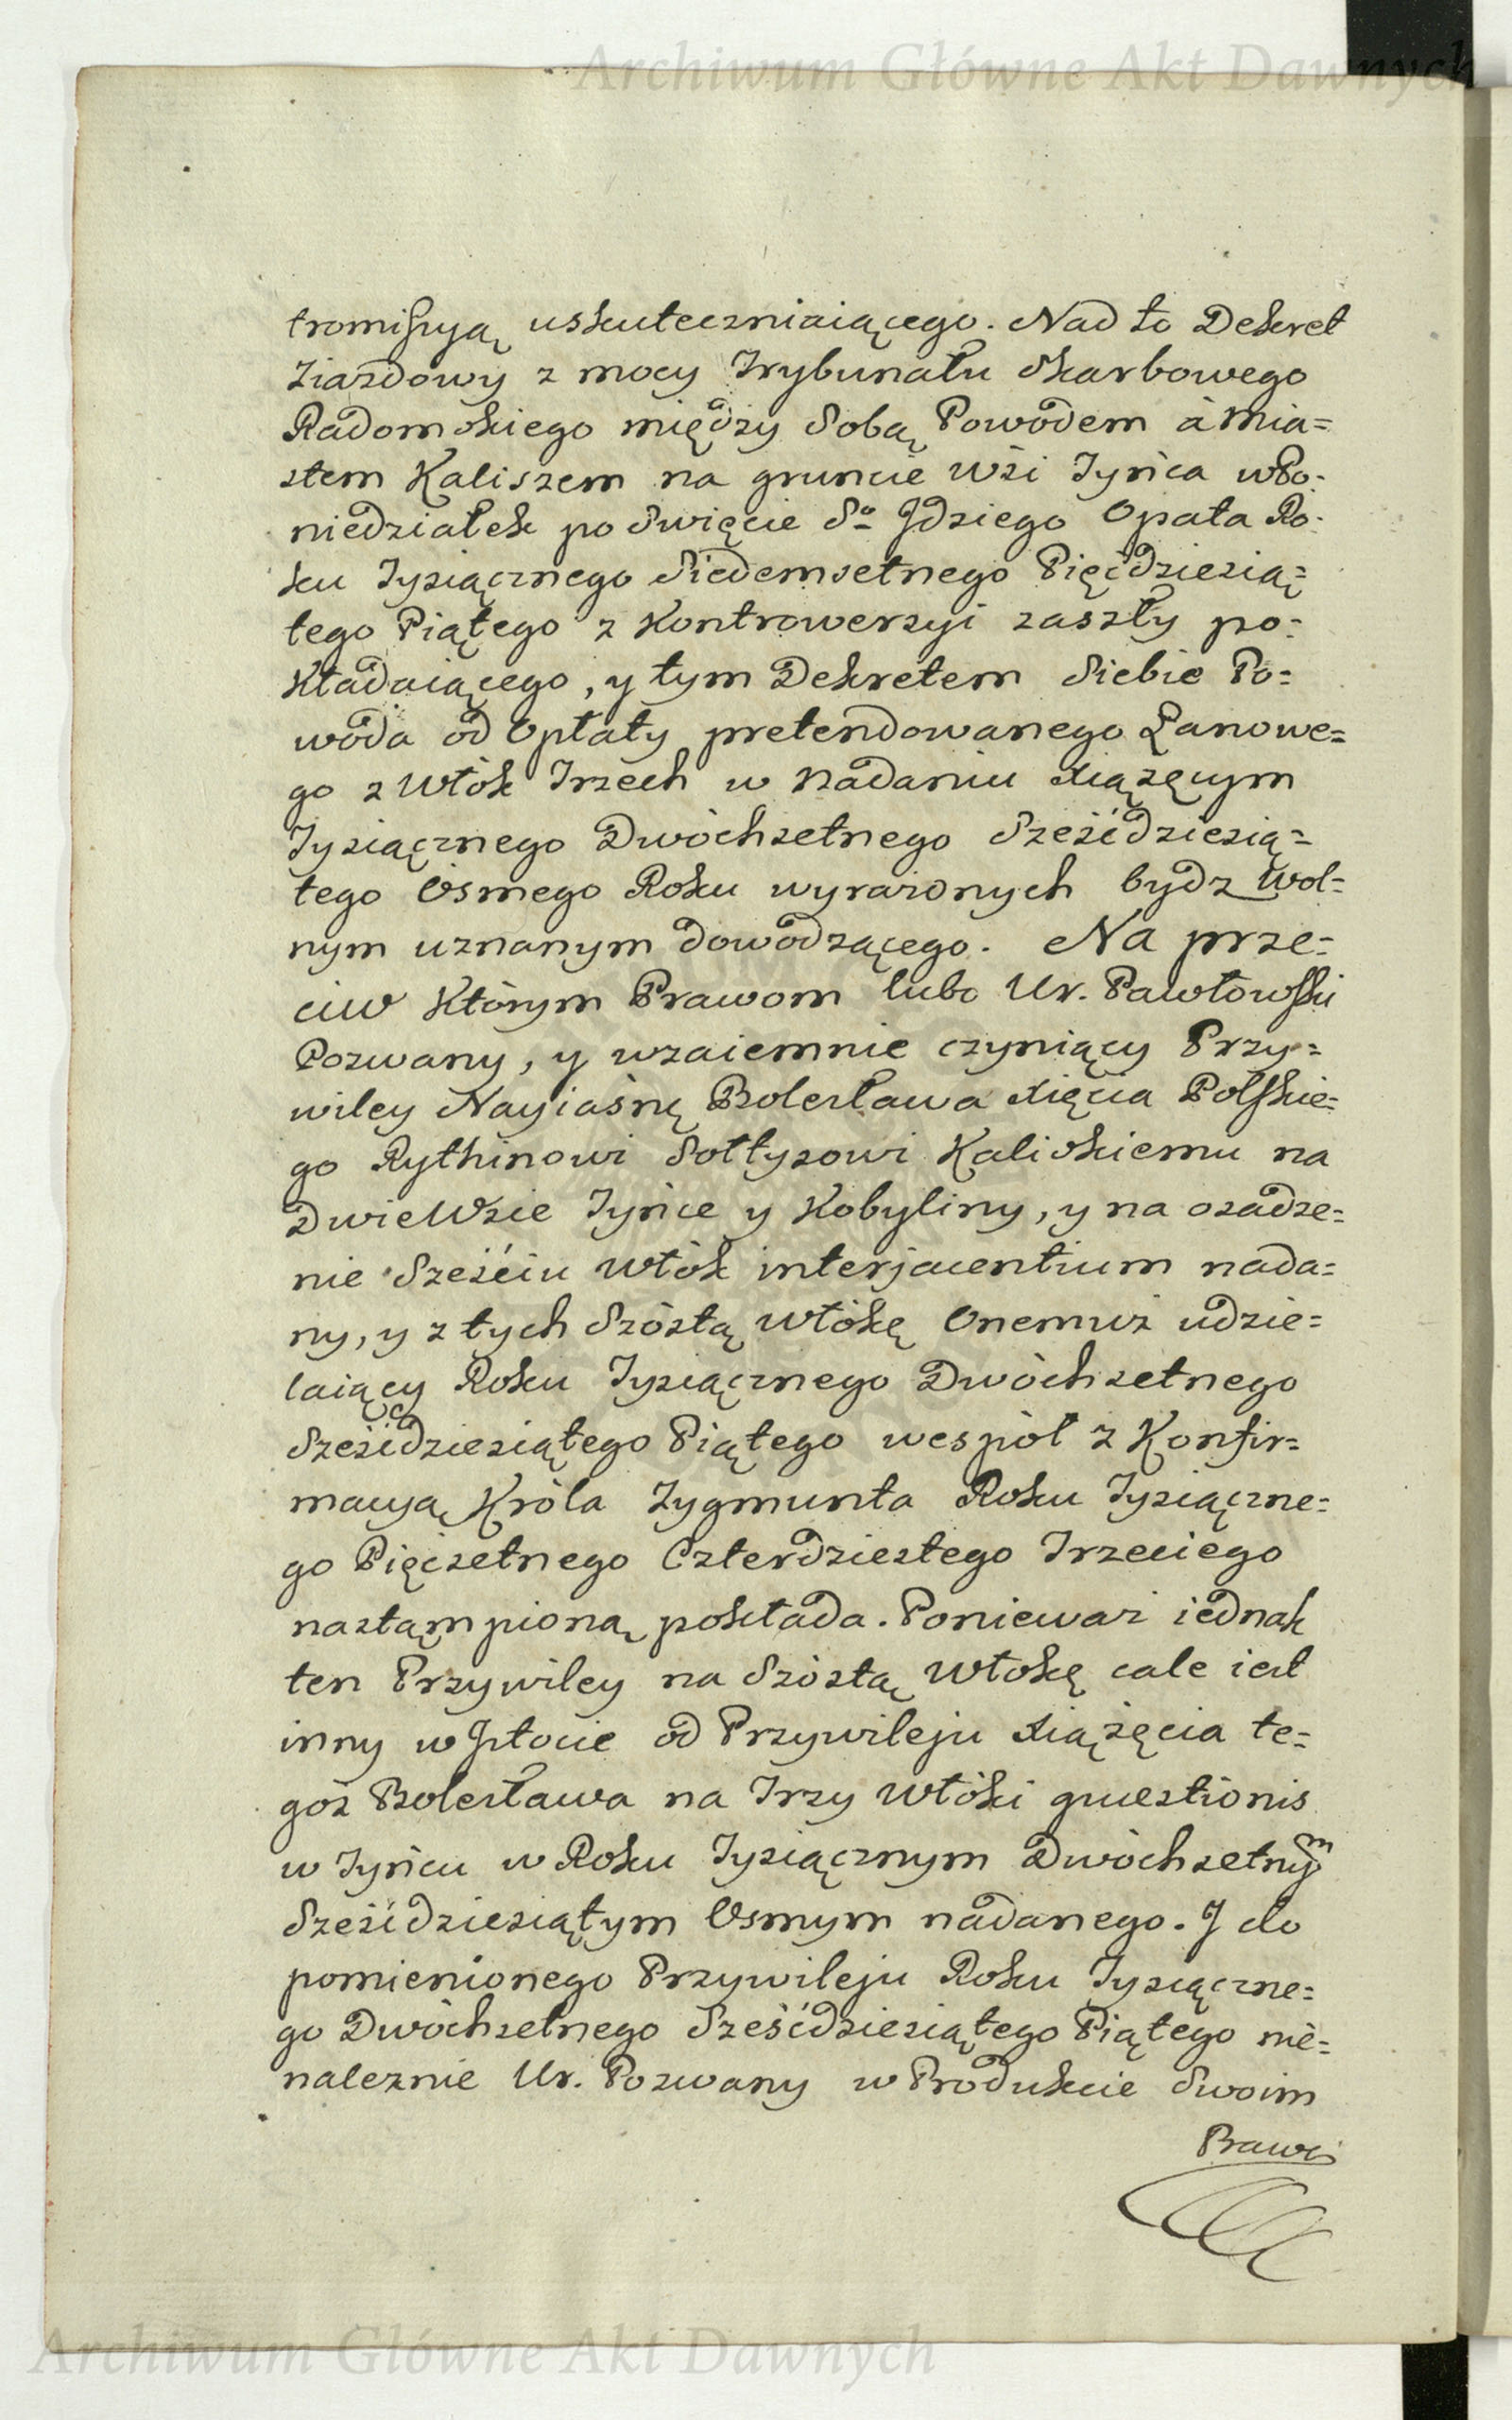 Archiwum Główne Akt Dawnych
tromissyą uskuteczniaiącego. Nad to Dekret
Ziazdowy z mocy Trybunału Skarbowego
Radomskiego między Sobą Powodem á Mia=
stem Kaliszem na gruncie Wsi Tyńca w Po-
niedziałek po Swięcie Sº Jdziego Opata Ro-
ku Tysiącznego Siedemsetnego Pięćdziesią=
tego Piątego z Kontrowersyi zaszły po=
Kładaiącego, y tym Dekretem Siebie Po=
woda od Opłaty pretendowanego Łanowe=
go z Włok Trzech w Nadaniu Xiążęcym
Tysiącznego Dwóchsetnego Sześćdziesią=
tego Osmego Roku wyrazonych bydz Wol=
nym uznanym dowodzącego. Na prze=
ciw Którym Prawom lubo Ur. Pawłowski
Pozwany, y wzaiemnie czyniący Przy=
wiley Nayiaśnę Bolesława Xięcia Polskie=
go Rythinowi Sołtysowi Kaliskiemu na
Dwie Wsie Tyńce y Kobyliny, y na osadze=
nie Sześciu Włók interjacentium nada=
ny, y z tych Szóstą Włókę Onemuż udzie=
laiący Roku Tysiącznego Dwóchsetnego
Sześćdziesiątego Piątego wespół z Konfir=
macyą Króla Zygmunta Roku Tysiączne=
go Pięćsetnego Czterdziestego Trzeciego
nastąmpioną pokłada. Poniewaz iednak
ten Przywiley na Szóstą Włokę cale iest
inny w Jstocie od Przywileju Xiążęcia te=
goż Bolesława na Trzy Włóki questionis
w Tyńcu w Roku Tysiącznym Dwóchsetnym
Sześćdziesiątym Osmym nadanego. J do
pomienionego Przywileju Roku Tysiączne=
go Dwóchsetnego Sześćdziesiątego Piątego nie=
naleznie Ur. Pozwany w Produkcie Swoim
Archiwum Główne Akt Dawnych